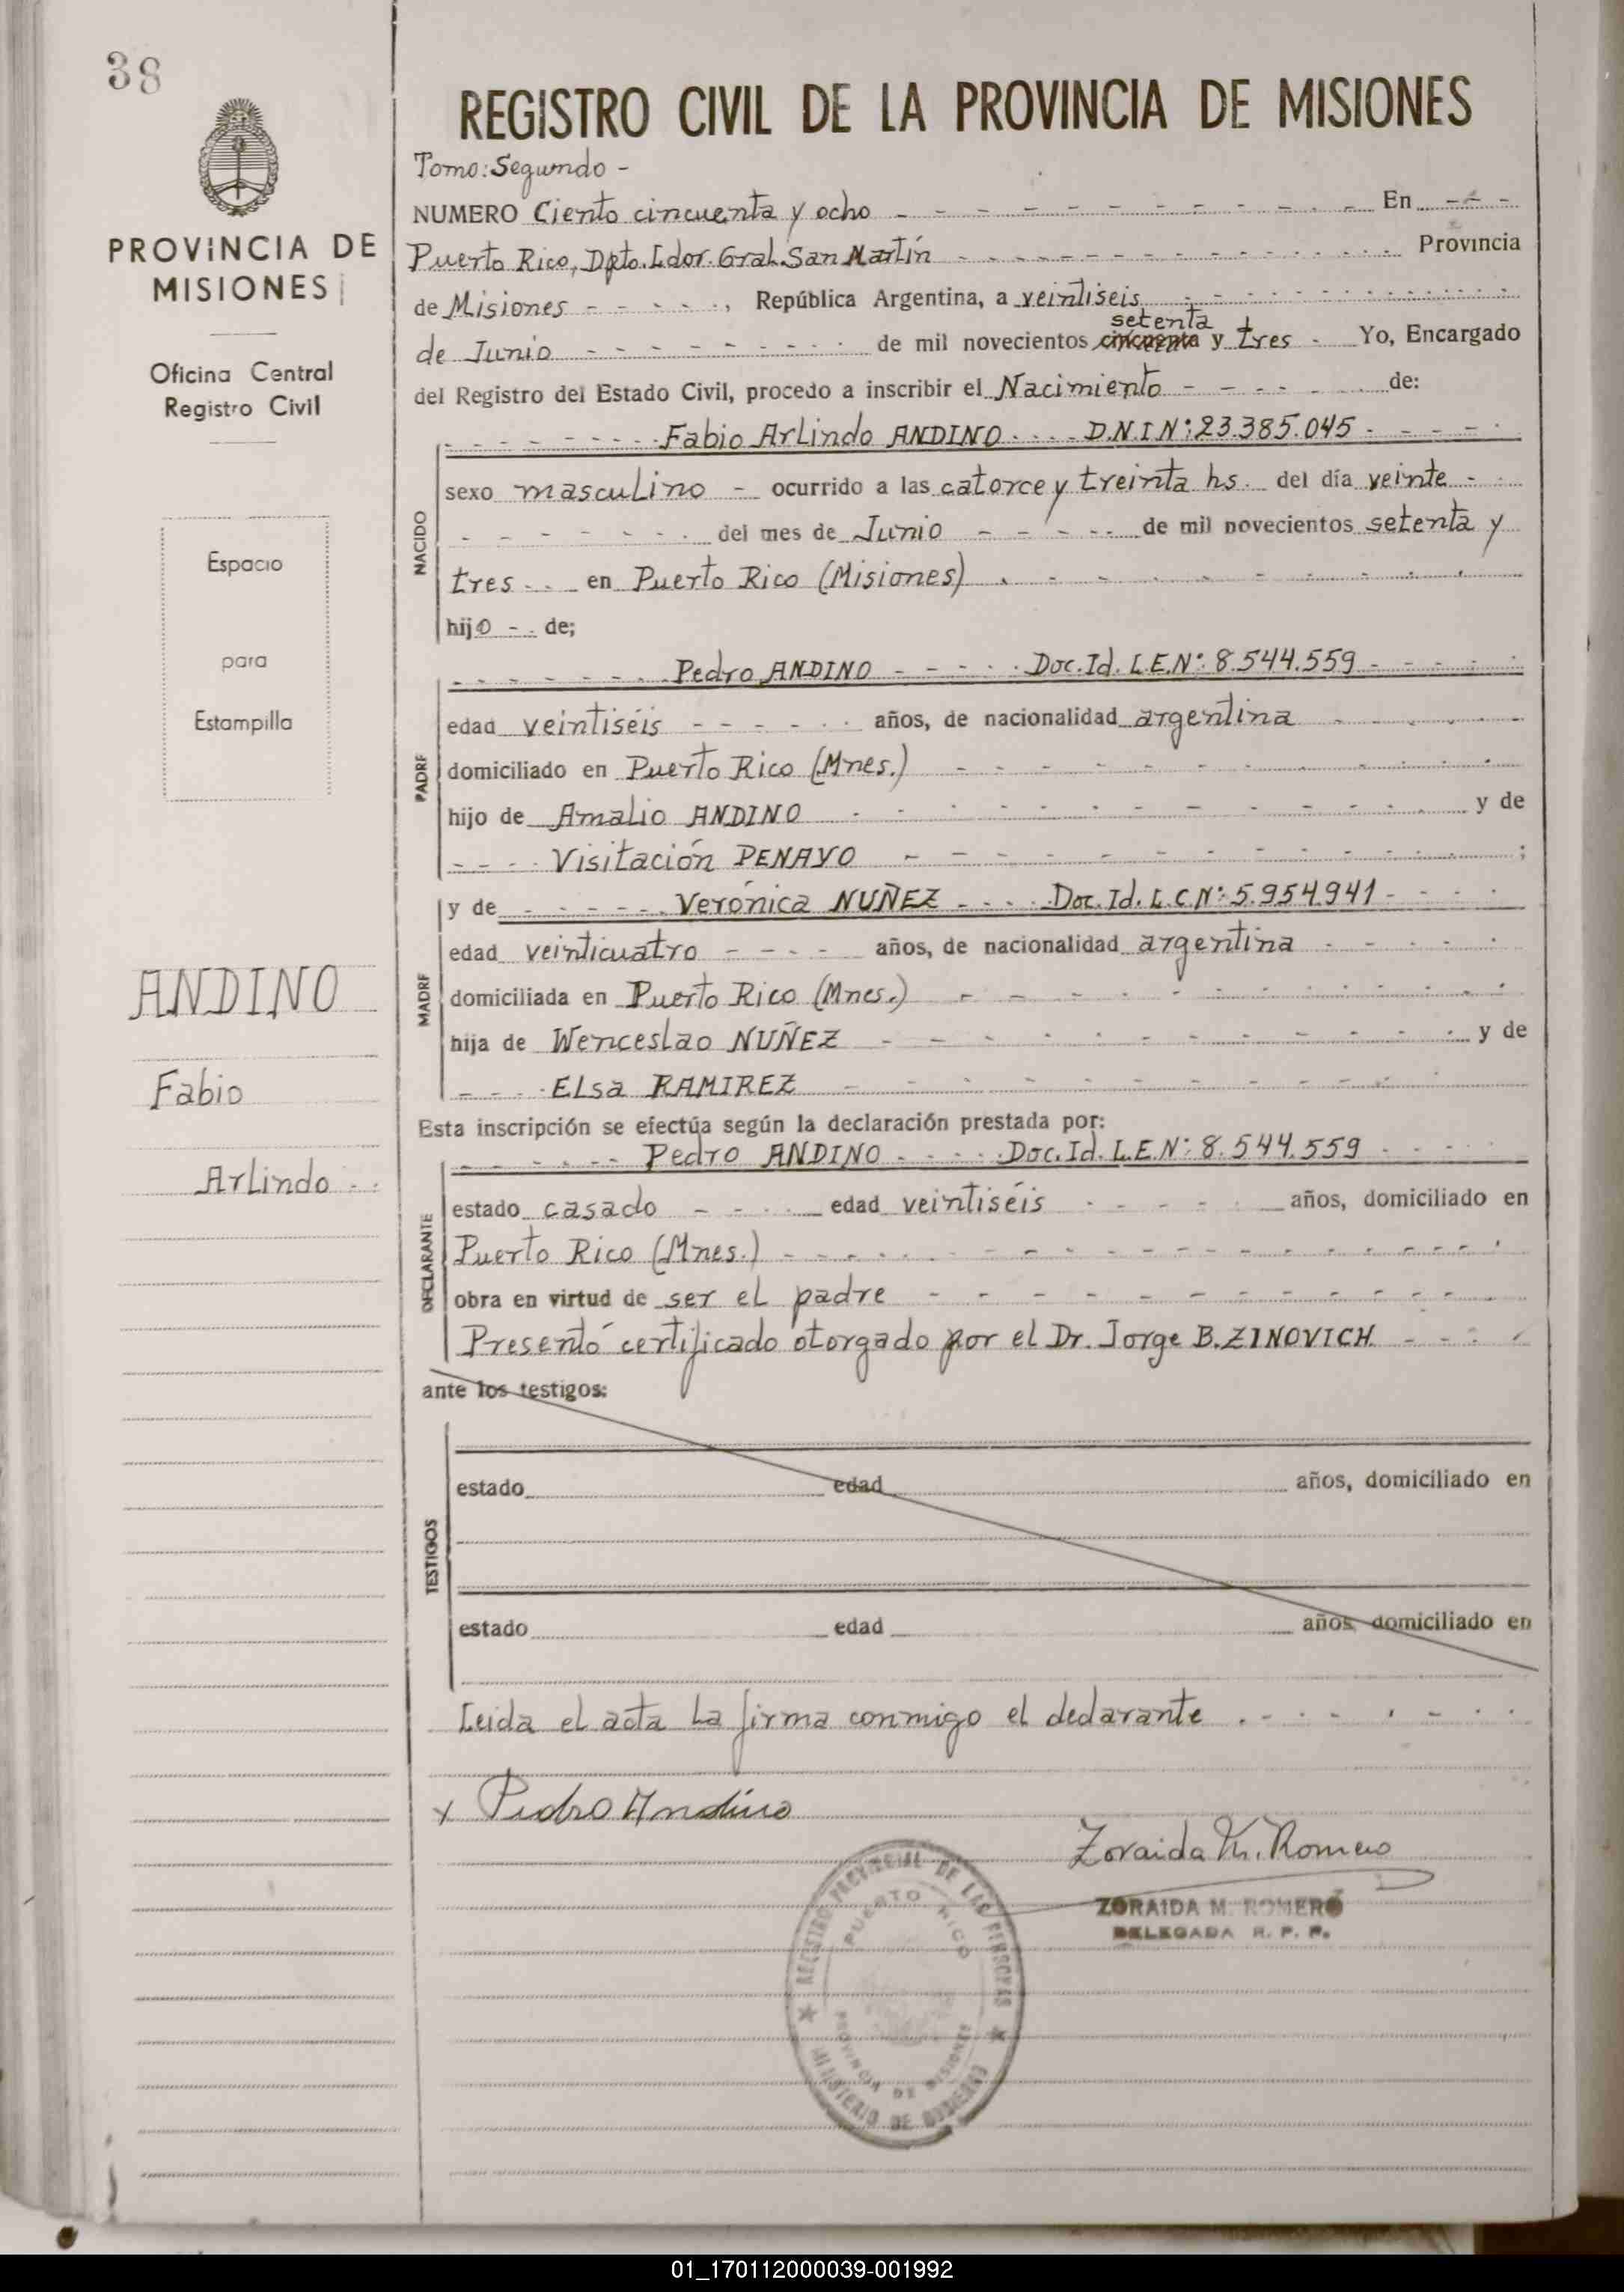 38
PROVINCIA DE
MISIONES
Oficina Central
Registro Civil
Espacio
para
Estampilla
ANDINO
Fabio
Arlindo
REGISTRO CIVIL DE LA PROVINCIA DE MISIONES
Tomo: Segundo -
NUMERO Ciento cincuenta y ocho En
Puerto Rico, Dpto. Ldor. Gral. San Martín Provincia
de Misiones , República Argentina, a veintiseis
setenta
de Junio de mil novecientos cincuenta y tres Yo, Encargado
del Registro del Estado Civil, procedo a inscribir el Nacimiento de:
Fabio Arlindo ANDINO D.N.I Nº: 23.385.045
NACIDO
sexo masculino ocurrido a las catorce y treinta hs. del día veinte
del mes de Junio de mil novecientos setenta y
tres en Puerto Rico (Misiones)
hijo de;
Pedro ANDINO Doc. Id. L.E. Nº: 8.544.559
PADRE
edad veintiséis años, de nacionalidad argentina
domiciliado en Puerto Rico (Mnes.)
hijo de Amalio ANDINO y de
Visitación PENAYO ;
y de Verónica NUÑEZ Doc. Id. L.C. Nº: 5.954.941
MADRE
edad veinticuatro años, de nacionalidad argentina
domiciliada en Puerto Rico (Mnes.)
hija de Wenceslao NUÑEZ y de
Elsa RAMIREZ
Esta inscripción se efectúa según la declaración prestada por:
Pedro ANDINO Doc. Id. L.E. Nº: 8.544.559
DECLARANTE
estado casado edad veintiséis años, domiciliado en
Puerto Rico (Mnes.)
obra en virtud de ser el padre
Presentó certificado otorgado por el Dr. Jorge B. ZINOVICH.
ante los testigos:
TESTIGOS
estado edad años, domiciliado en
estado edad años, domiciliado en
Leida el acta la firma conmigo el declarante
x Pedro Andino
Zoraida M. Romero
ZORAIDA M. ROMERO
DELEGADA R. P. P.
REGISTRO PROVINCIAL DE LAS PERSONAS
PUERTO RICO
PROVINCIA DE MISIONES
MINISTERIO DE GOBIERNO
01_170112000039-001992